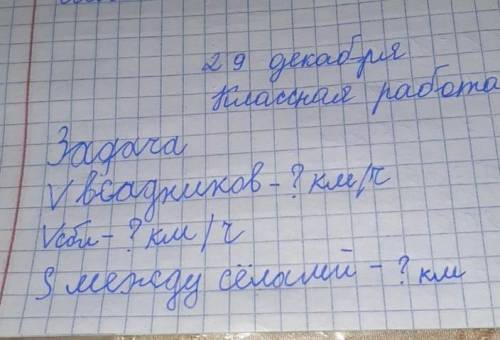 29 декабря
Классная работа
Задача
V всадников - ? км/ч
Vсбл - ? км/ч
S между сёлами - ? км